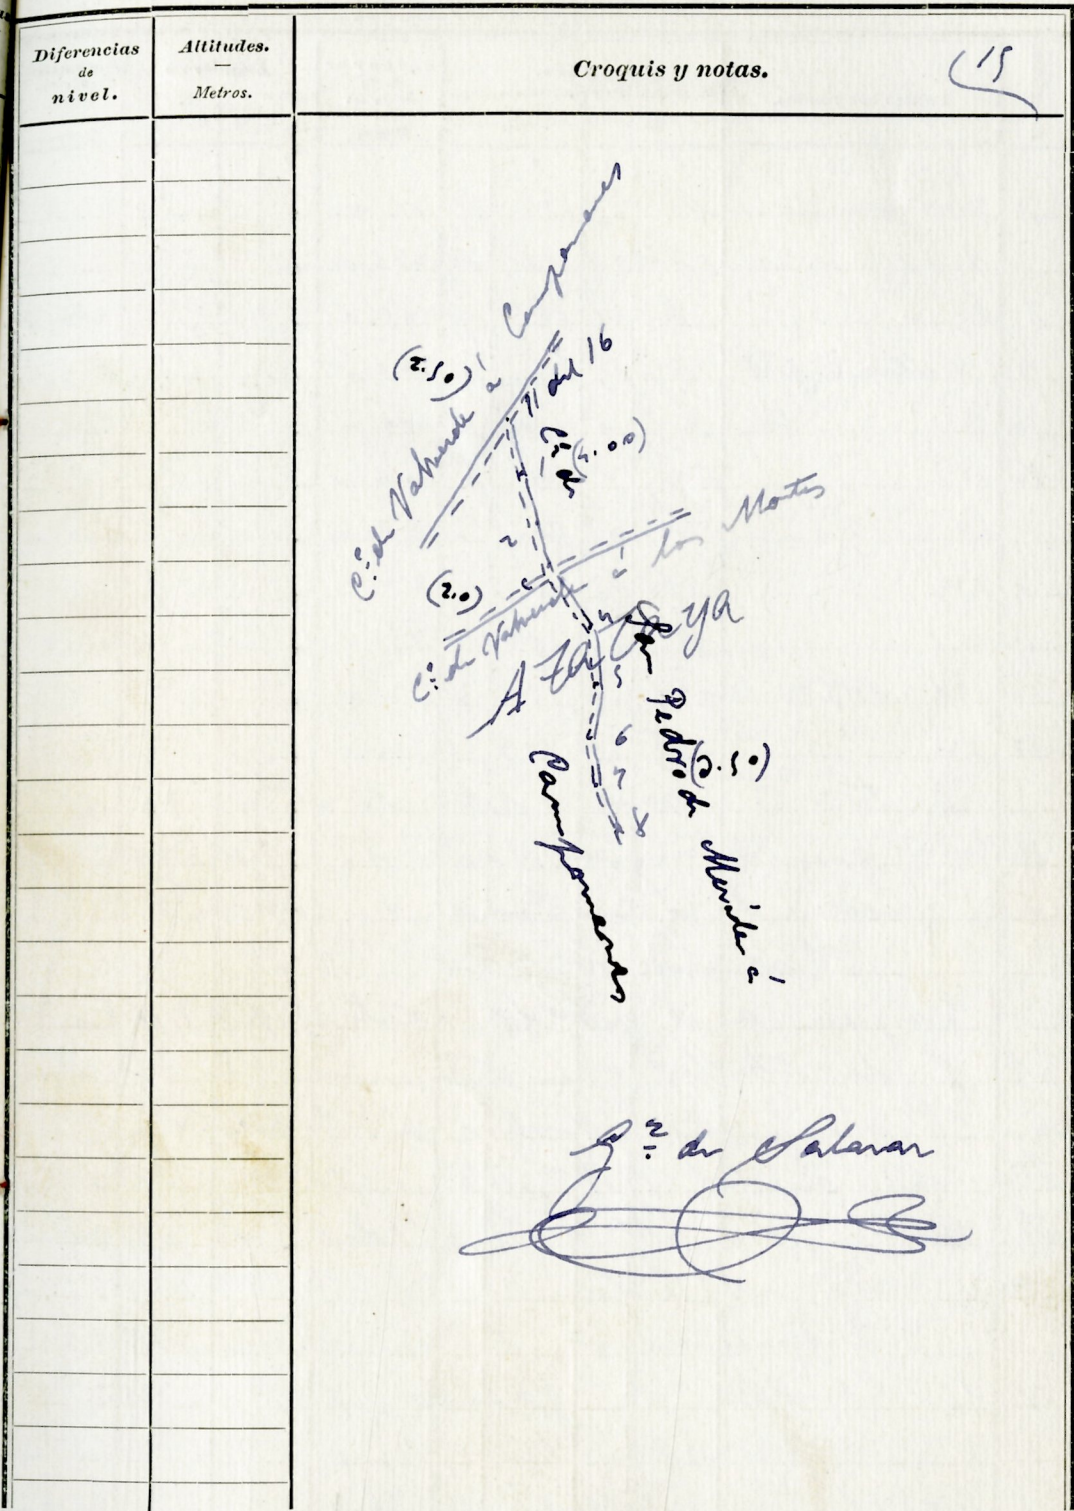 Diferencias
de
nivel.
Altitudes.
Metros.
Croquis y notas.
15
C.º de Valverde á Campomanes
(2.50)
11 del 16
C.º de
(2.0)
C.º de Valverde á los Montes
2
San Pedro de Meride á
Campomanes
5
6
7
8
G.ª de Salazar